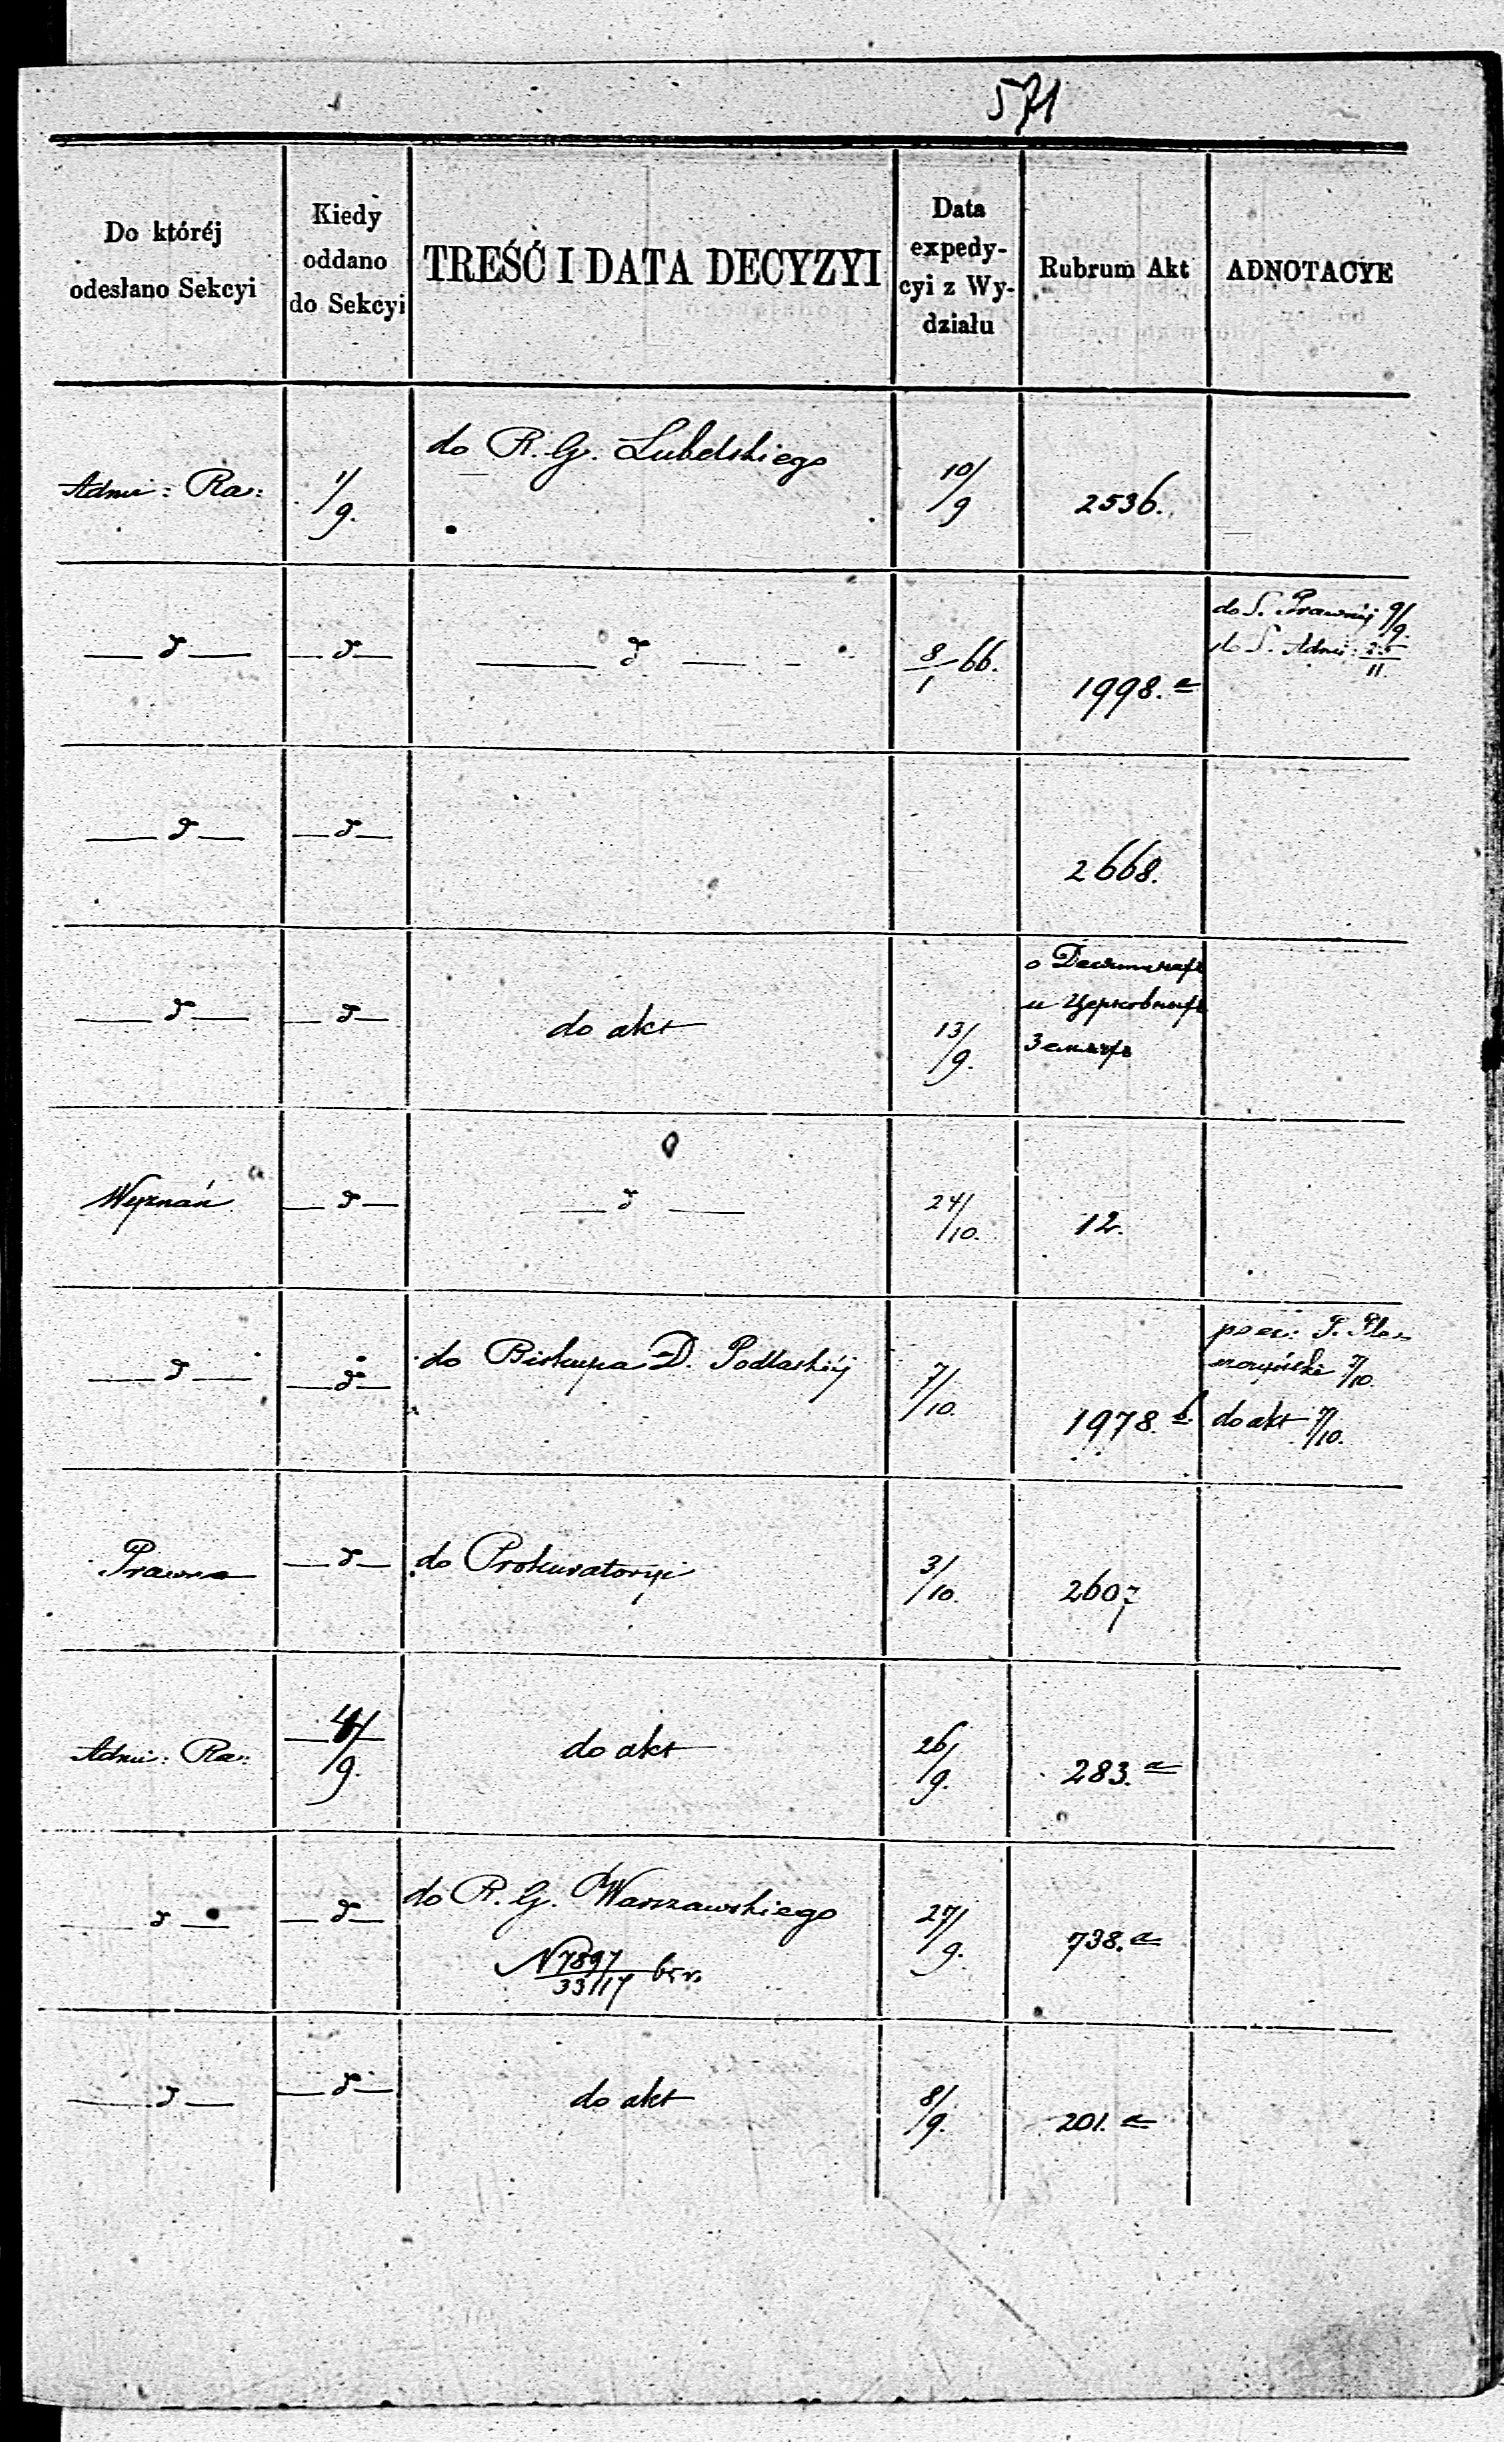 571
Do któréj odesłano Sekcyi
Kiedy oddano do Sekcyi
TREŚĆ I DATA DECYZYI
Data expedy- cyi z Wy- działu
Rubrum Akt
ADNOTACYE
Admi: Ra: 1/9. do R. G. Lubelskiego 10/9 2536.
— d — — d — — d — 8/1 66. 1998. a do S. Prawnéj 9/9.
do S. Admi: 25/11.
— d — — d — 2668.
— d — — d — do akt 13/9. о
и Церковныхъ
Wyznań — d — — d — 24/10. 12.
— d — — d — do Biskupa D. Podlaskiéj 7/10. 1978. b
7/10.
do akt 7/10.
Prawna — d — do Prokuratoryi 3/10. 2607
Admi: Ra: 4/9. do akt 26/9. 283. a
— d — — d — do R. G. Warszawskiego 27/9. 738. a
N 7897/33117
— d — — d — do akt 8/9. 201. a